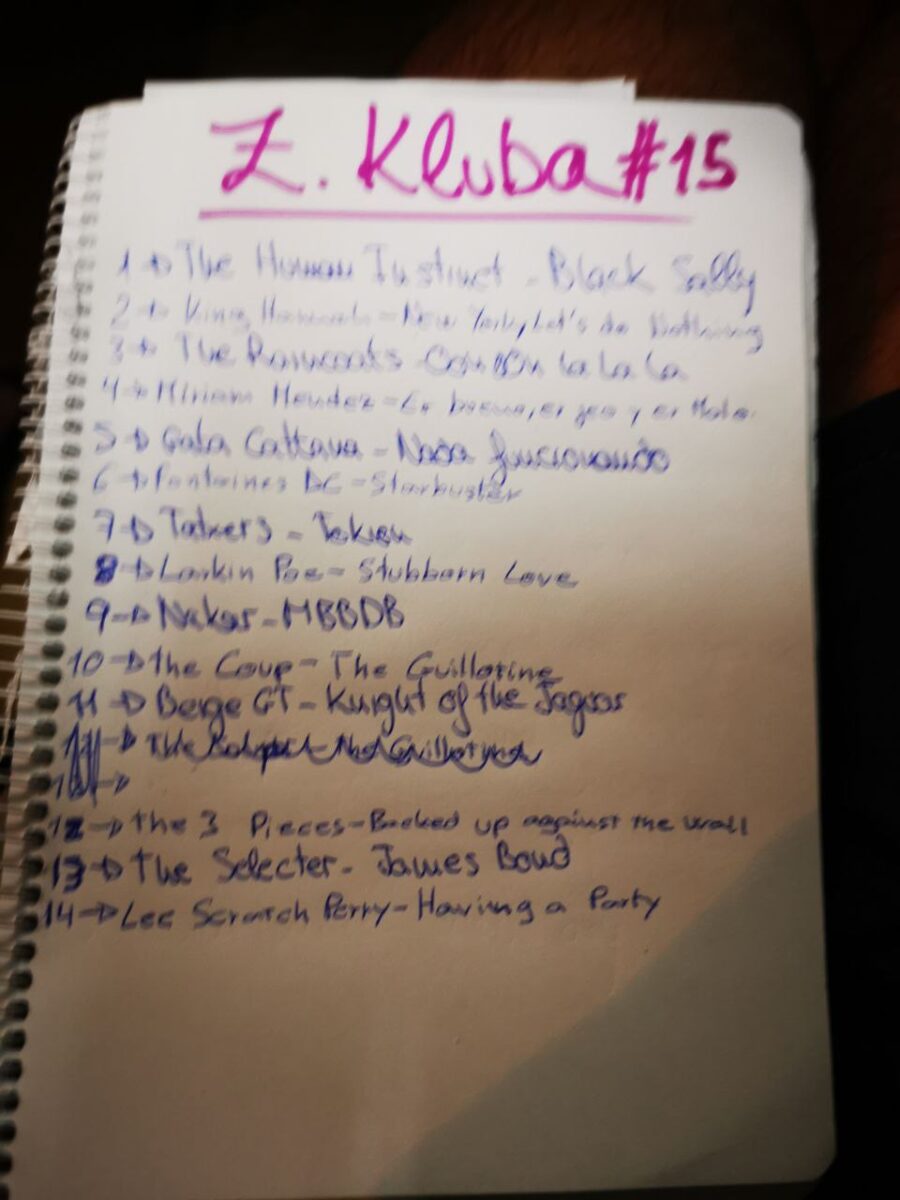 Z. Kluba #15
1 → The Human Instinct - Black Sally
2 → King Hannah - New York, Let's do Nothing
3 → The Raincoats - On La La La
4 → Miriam Mendez - Er bueno, er feo y er Malo.
5 → Gata Cattana - Nada funcionando
6 → Fontaines DC - Starbuster
7 → - Tokien
8 → Larkin Poe - Stubborn Love
9 → Nakar - MBBDB
10 → the Coup - The Guillotine
11 → Beige GT - Knight of the Jaguar
12 → the 3 Pieces - Backed up against the wall
13 → The Selecter - James Bond
14 → Lee Scratch Perry - Having a Party